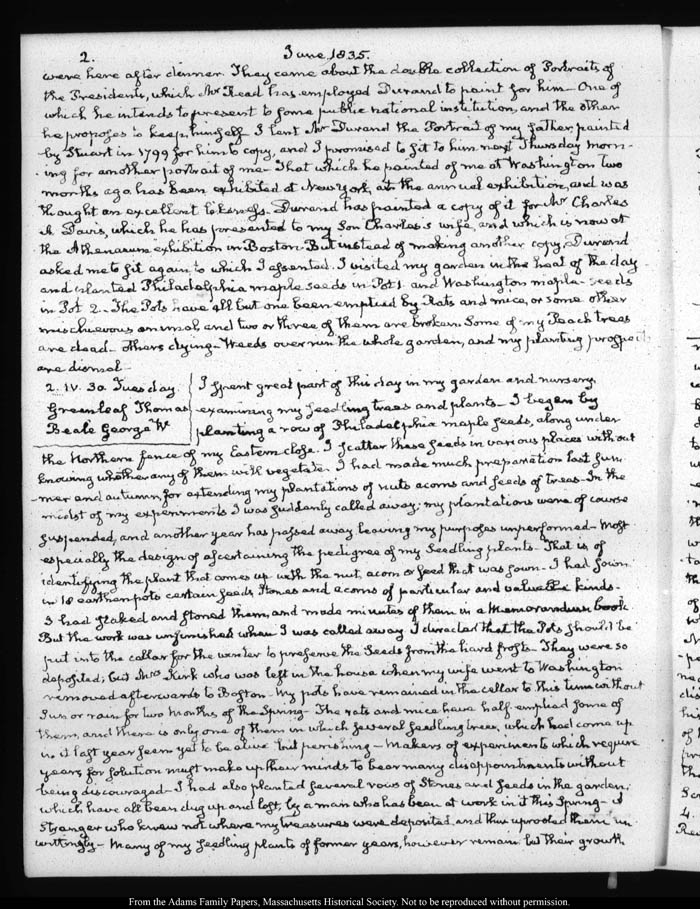 2. June 1835.
were here after dinner. They came about the double collection of Portraits of
the Presidents, which Mr Read has employed Durand to paint for him - One of
which he intends to present to some public national institution, and the other
he proposes to keep himself. I lent Mr Durand the Portrait of my father, painted
by Stuart in 1799 for him to copy, and I promised to sit to him next Thursday morn-
ing for another portrait of me - That which he painted of me at Washington two
months ago has been exhibited at New York, at the annual exhibition, and was
thought an excellent likeness. Durand has painted a copy of it for Mr Charles
A. Davis, which he has presented to my Son Charles's wife, and which is now at
the Athenaeum exhibition in Boston. But instead of making another copy, Durand
asked me to sit again to which I assented. I visited my garden in the heat of the day
and planted Philadelphia maple seeds in Pot 1. and Washington maple-seeds
in Pot 2 - The Pots have all but one been emptied by Rats and mice, or some other
mischievous animal, and two or three of them are broken. Some of my Peach trees
are dead - others dying - Weeds over run the whole garden, and my planting prospects
are dismal -
2. IV. 30. Tuesday. I spent great part of this day in my garden and nursery,
Greenleaf Thomas examining my seedling trees and plants - I began by
Beale George W. planting a row of Philadelphia maple seeds, along under
the Northern fence of my Eastern close. I scatter these seeds in various places without
knowing whether any of them will vegetate. I had made much preparation last sum-
-mer and autumn for extending my plantations of nuts acorns and seeds of trees - In the
midst of my experiments I was suddenly called away; my plantations were of course
suspended, and another year has passed away leaving my purposes unperformed - Most
especially the design of ascertaining the pedigree of my Seedling plants - That is of
identifying the plant that comes up with the nut, acorn or seed that was sown - I had sown
in 18 earthen pots certain seeds, stones and acorns of particular and valuable kinds -
I had staked and stoned them, and made minutes of them in a Memorandum book
But the work was unfinished when I was called away. I directed that the Pots should be
put into the cellar for the winter to preserve the Seeds from the hard frosts - They were so
deposited; but Mrs Kirk who was left in the house when my wife went to Washington
removed afterwards to Boston - My pots have remained in the cellar to this time without
Sun or rain for two months of the Spring - The rats and mice have half emptied some of
them, and there is only one of them in which several seedling trees, which had come up
in it last year seem yet to be alive but perishing - Makers of experiments which require
years for solution must make up their minds to bear many disappointments without
being discouraged - I had also planted several rows of Stones and seeds in the garden,
which have all been dug up and lost, by a man who has been at work in it this Spring - A
Stranger who knew not where my treasures were deposited, and thus uprooted them un
wittingly - Many of my seedling plants of former years, however remain but their growth
From the Adams Family Papers, Massachusetts Historical Society. Not to be reproduced without permission.